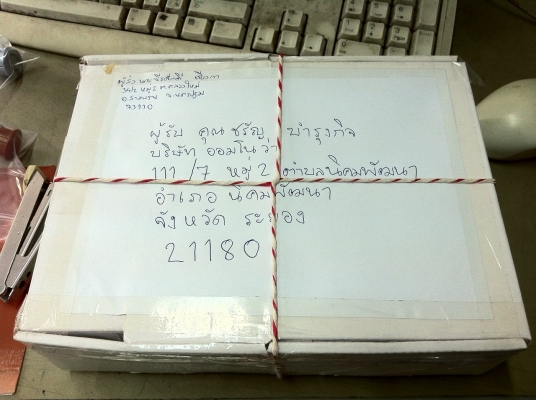 34/2 หมู่ 2 ต.คลองใหม่
อ.สามพราน จ.นครปฐม
73110
ผู้รับ คุณ ชรัญ บำรุงกิจ
บริษัท ออมโนวา
111/7 หมู่ 2 ตำบลนิคมพัฒนา
อำเภอ นิคมพัฒนา
จังหวัด ระยอง
21180